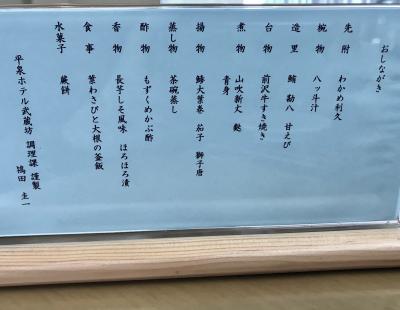 おしながき
先附 わかめ利久
椀物 八ッ斗汁
造里 鮪 勘八 甘えび
台物 前沢牛すき焼き
煮物 山吹新丈 麩
青身
揚物 鱚大葉巻 茄子 獅子唐
蒸し物 茶碗蒸し
酢物 もずくめかぶ酢
香物 長芋しそ風味 ほろほろ漬
食事 葉わさびと大根の釜飯
水菓子 蕨餅
平泉ホテル武蔵坊 調理課 謹製
田 圭一